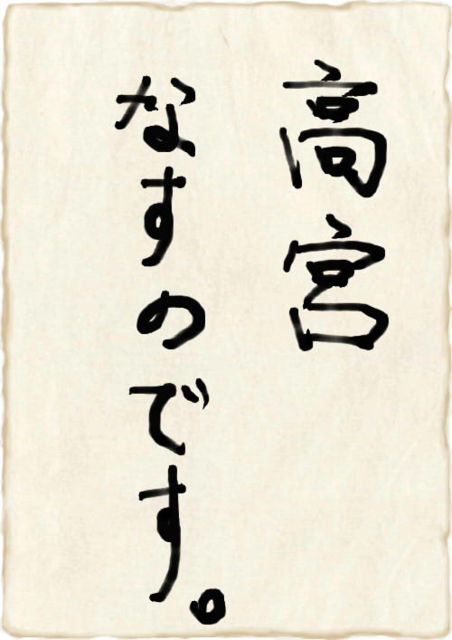 高宮
なすのです。